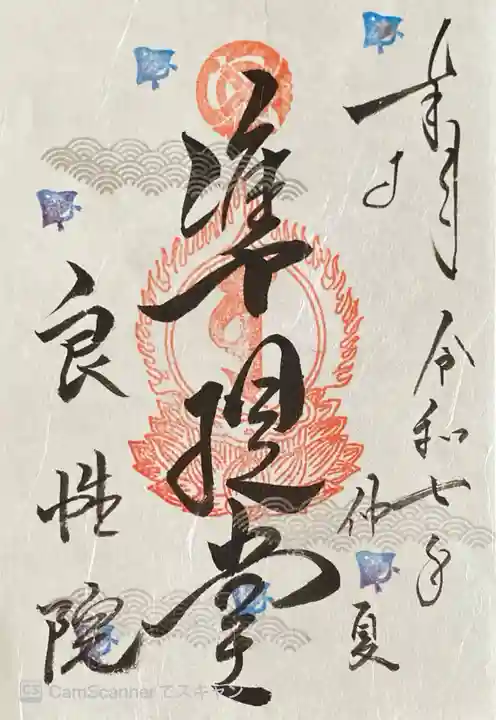 奉拝
令和七年
仲夏
準提堂
良性院
CS CamScannerでスキャン